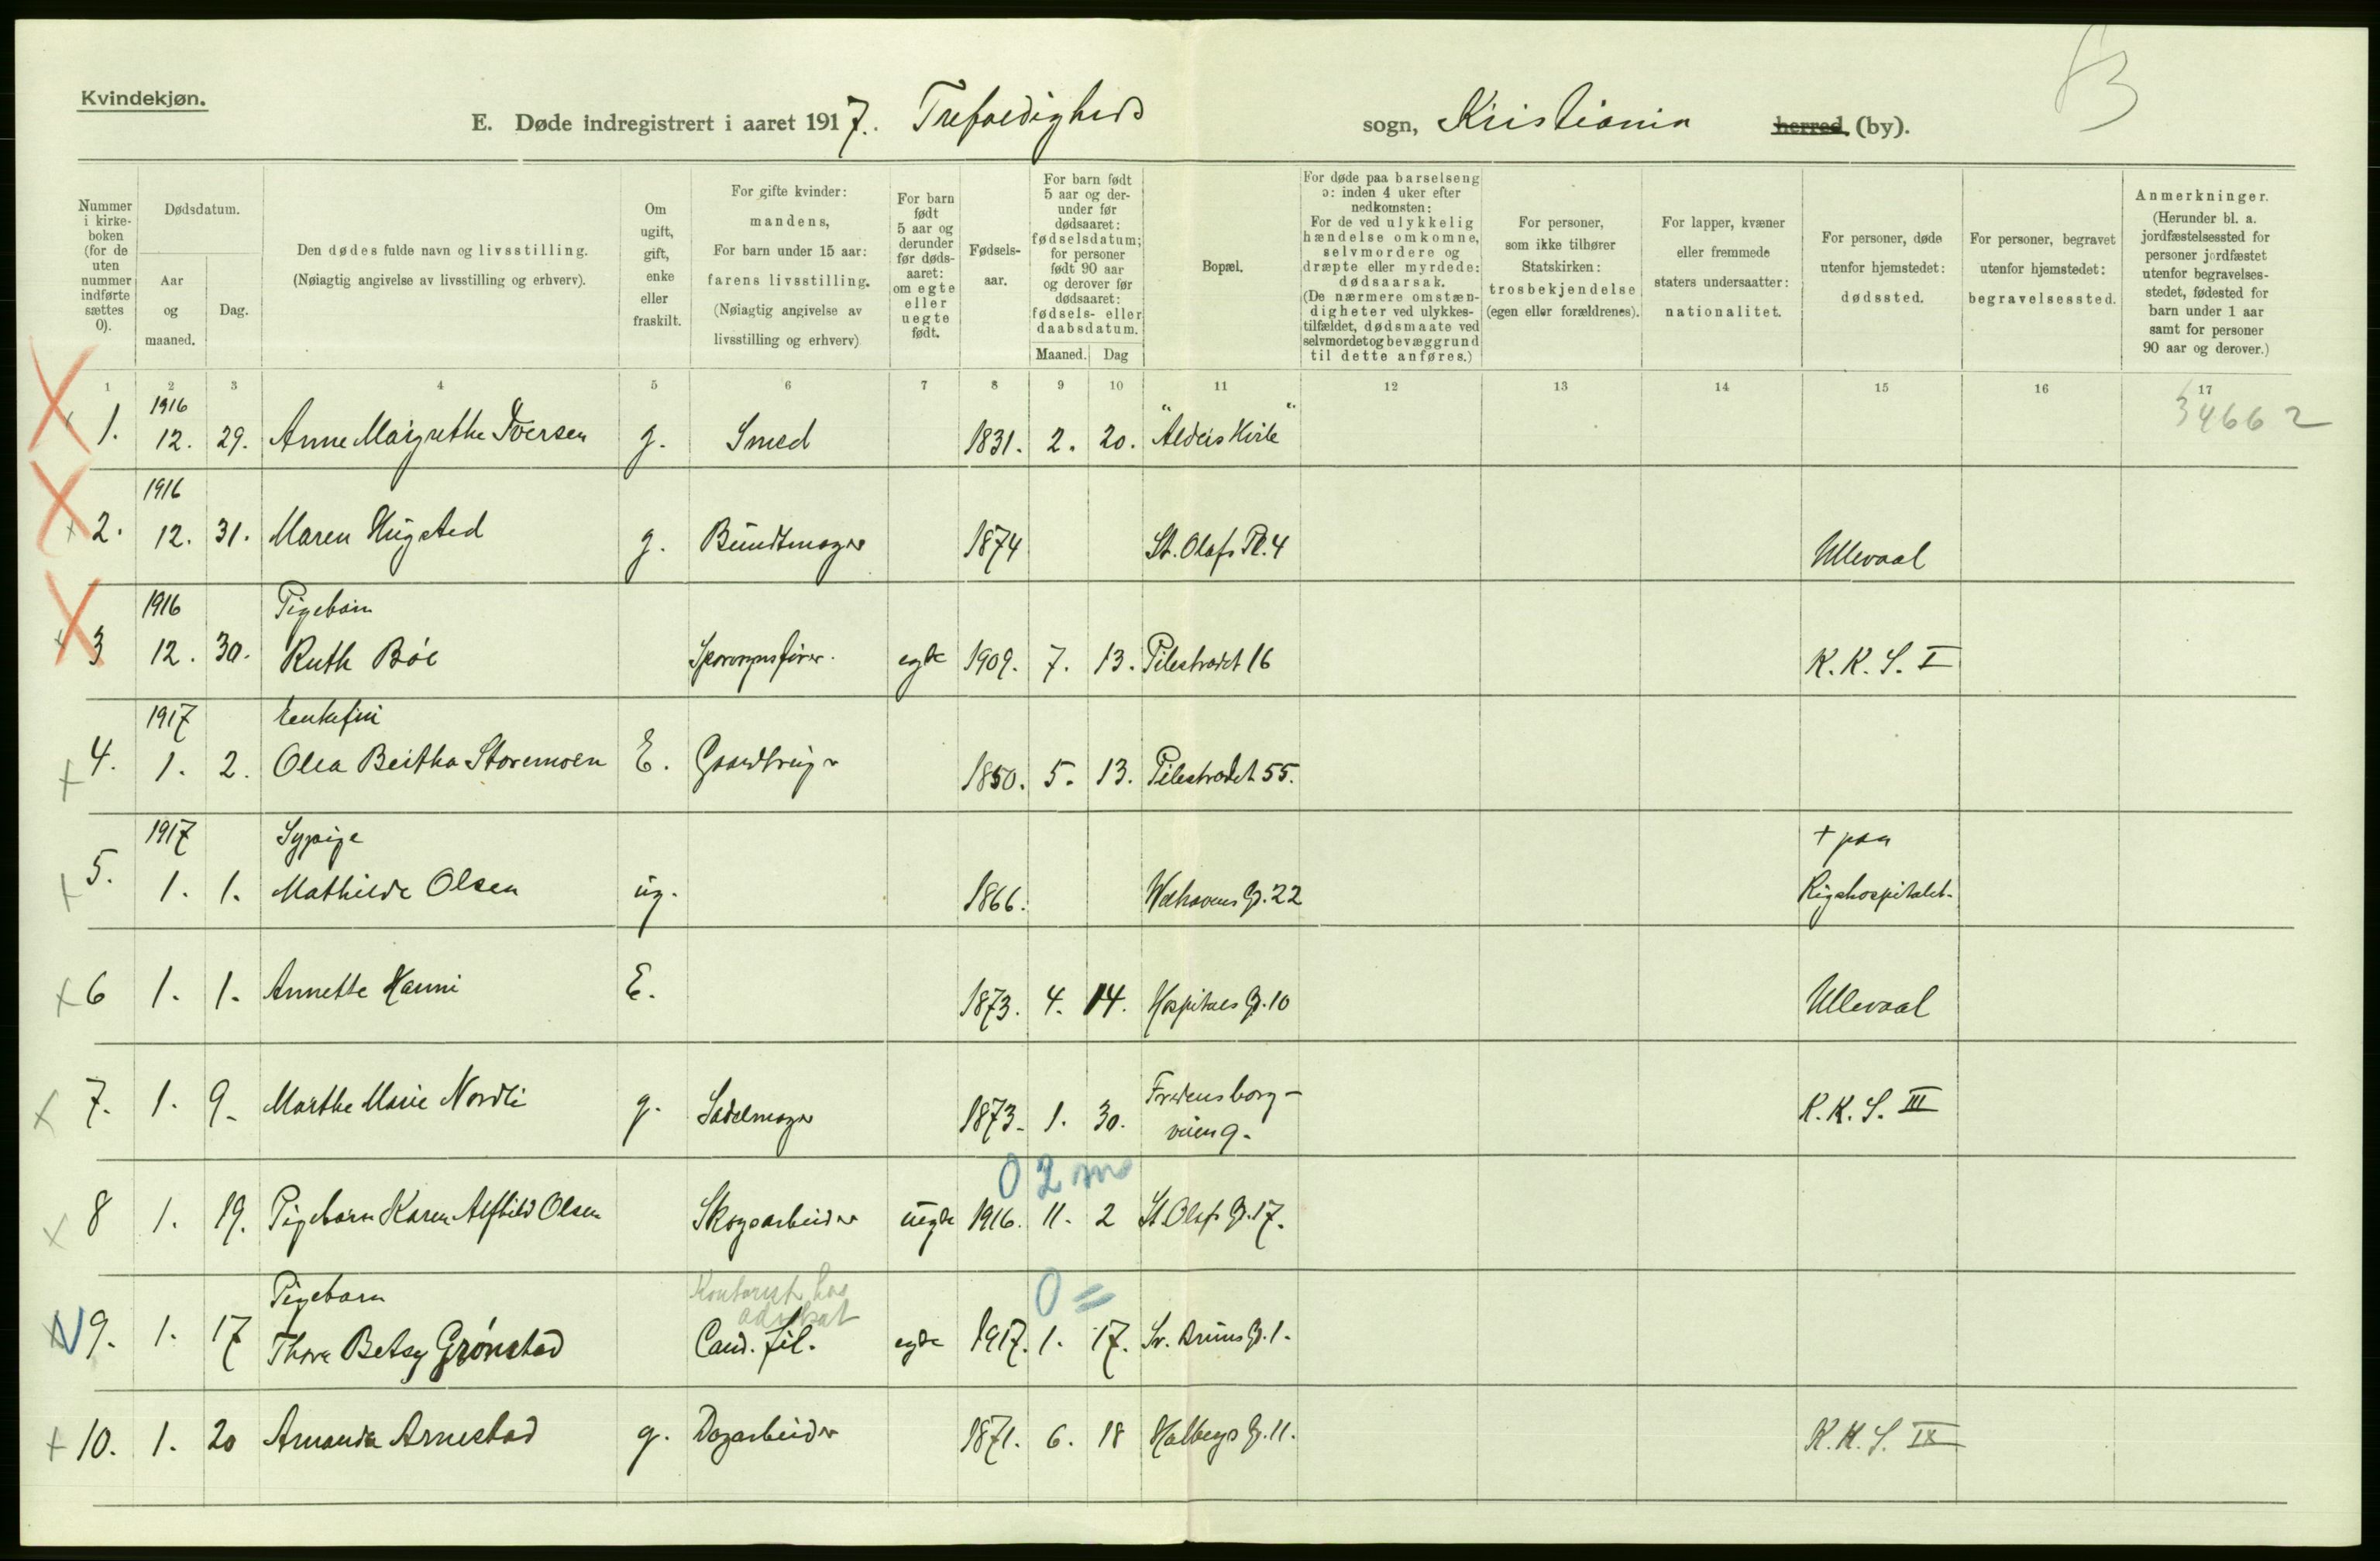 Kvindekjøn.
E. Døde indregistrert i aaret 1917. Trefoldigheds sogn, Kristiania herred (by).
Nummer i kirke-boken (for de uten nummer indførte sættes 0).
Dødsdatum.
Aar og maaned.
Dag.
Den dødes fulde navn og livsstilling.
(Nøiagtig angivelse av livsstilling og erhverv).
Om ugift, gift, enke eller fraskilt.
For gifte kvinder: mandens,
For barn under 15 aar: farens livsstilling.
(Nøiagtig angivelse av livsstilling og erhverv)
For barn født 5 aar og derunder før døds-aaret: om egte eller uegte født.
Fødsels-aar.
For barn født 5 aar og der-under før dødsaaret: fødselsdatum; for personer født 90 aar og derover før dødsaaret: fødsels- eller daabsdatum.
Maaned. Dag
Bopæl.
For døde paa barselseng ɔ: inden 4 uker efter nedkomsten:
For de ved ulykkelig hændelse omkomne, selvmordere og dræpte eller myrdede: dødsaarsak.
(De nærmere omstæn-digheter ved ulykkes-tilfældet, dødsmaate ved selvmordet og bevæggrund til dette anføres.)
For personer, som ikke tilhører Statskirken: trosbekjendelse (egen eller forældrenes).
For lapper, kvæner eller fremmede staters undersaatter: nationalitet.
For personer, døde utenfor hjemstedet: dødssted.
For personer, begravet utenfor hjemstedet: begravelsessted.
Anmerkninger.
(Herunder bl. a. jordfæstelsessted for personer jordfæstet utenfor begravelses-stedet, fødested for barn under 1 aar samt for personer 90 aar og derover.)
1 2 3 4 5 6 7 8 9 10 11 12 13 14 15 16 17
34662
1916
1. 12. 29. Anne Margrethe Iversen g. Smed 1831. 2. 20. "Alders Hvile"
1916
2. 12. 31. Maren Hugsted g. Buntmager 1874 St. Olafs Pl. 4 Ullevaal
1916 Pigebarn
3 12. 30. Ruth Bøe Sporvognsfører. egte 1909. 7. 13. Pilestrædet 16 K. K. S. I
1917 Enkefru
4. 1. 2. Olea Bertha Storemoen E. Gaardbruger 1850. 5. 13. Pilestrædet 55.
1917 Sypige + paa
5. 1. 1. Mathilde Olsen ug. 1866. Welhavens G. 22 Rigshospitalet.
6 1. 1. Annette Hanni E. 1873. 4. 14. Hospitals G. 10 Ullevaal
7. 1. 9. Marthe Marie Nordli g. Sadelmager 1873. 1. 30. Fredensborg-
veien 9. K. K. S. III
0 2 mo
8 1. 19. Pigebarn Karen Alfhild Olsen Skogsarbeider uegte 1916. 11. 2 St. Olafs G. 17.
Pigebarn Kontorist hos advokat 0 =
9. 1. 17 Thora Betsy Grønstad Cand. fil. egte 1917. 1. 17. Kr. Bruns G. 1.
10. 1. 20 Amanda Arnestad g. Dagarbeider 1871. 6. 18 Holbergs G. 11. K. K. S. IX